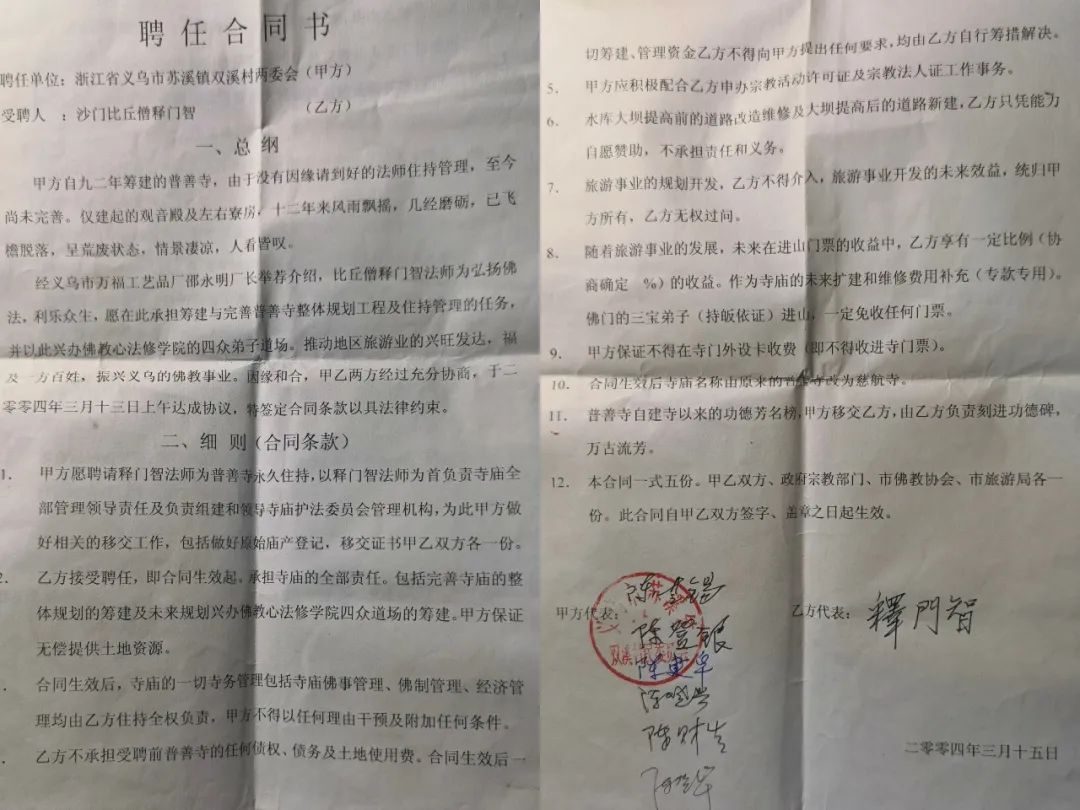 聘任合同书
聘任单位：浙江省义乌市苏溪镇双溪村两委会（甲方）
受聘人 ：沙门比丘僧释门智 （乙方）
一、总 纲
甲方自九二年筹建的普善寺，由于没有因缘请到好的法师住持管理，至今
尚未完善。仅建起的观音殿及左右寮房，十二年来风雨飘摇，几经磨砺，已飞
檐脱落，呈荒废状态，情景凄凉，人看皆叹。
经义乌市万福工艺品厂邵永明厂长举荐介绍，比丘僧释门智法师为弘扬佛
法，利乐众生，愿在此承担筹建与完善普善寺整体规划工程及住持管理的任务，
并以此兴办佛教心法修学院的四众弟子道场。推动地区旅游业的兴旺发达，福
及一方百姓，振兴义乌的佛教事业。因缘和合，甲乙两方经过充分协商，于二
零零四年三月十三日上午达成协议，特签定合同条款以具法律约束。
二、细 则（合同条款）
1. 甲方愿聘请释门智法师为普善寺永久住持，以释门智法师为首负责寺庙全
部管理领导责任及负责组建和领导寺庙护法委员会管理机构，为此甲方做
好相关的移交工作，包括做好原始庙产登记，移交证书甲乙双方各一份。
2. 乙方接受聘任，即合同生效起。承担寺庙的全部责任。包括完善寺庙的整
体规划的筹建及未来规划兴办佛教心法修学院四众道场的筹建。甲方保证
无偿提供土地资源。
合同生效后，寺庙的一切寺务管理包括寺庙佛事管理、佛制管理、经济管
理均由乙方住持全权负责，甲方不得以任何理由干预及附加任何条件。
乙方不承担受聘前普善寺的任何债权、债务及土地使用费。合同生效后一
切筹建、管理资金乙方不得向甲方提出任何要求，均由乙方自行筹措解决。
5. 甲方应积极配合乙方申办宗教活动许可证及宗教法人证工作事务。
6. 水库大坝提高前的道路改造维修及大坝提高后的道路新建，乙方只凭能力
自愿赞助，不承担责任和义务。
7. 旅游事业的规划开发，乙方不得介入，旅游事业开发的未来效益，统归甲
方所有，乙方无权过问。
8. 随着旅游事业的发展，未来在进山门票的收益中，乙方享有一定比例（协
商确定 %）的收益。作为寺庙的未来扩建和维修费用补充（专款专用）。
佛门的三宝弟子（持皈依证）进山，一定免收任何门票。
9. 甲方保证不得在寺门外设卡收费（即不得收进寺门票）。
10. 合同生效后寺庙名称由原来的普善寺改为慈航寺。
11. 普善寺自建寺以来的功德芳名榜，甲方移交乙方，由乙方负责刻进功德碑，
万古流芳。
12. 本合同一式五份。甲乙双方、政府宗教部门、市佛教协会、市旅游局各一
份。此合同自甲乙双方签字、盖章之日起生效。
甲方代表： 乙方代表：釋門智
陈财生
二零零四年三月十五日